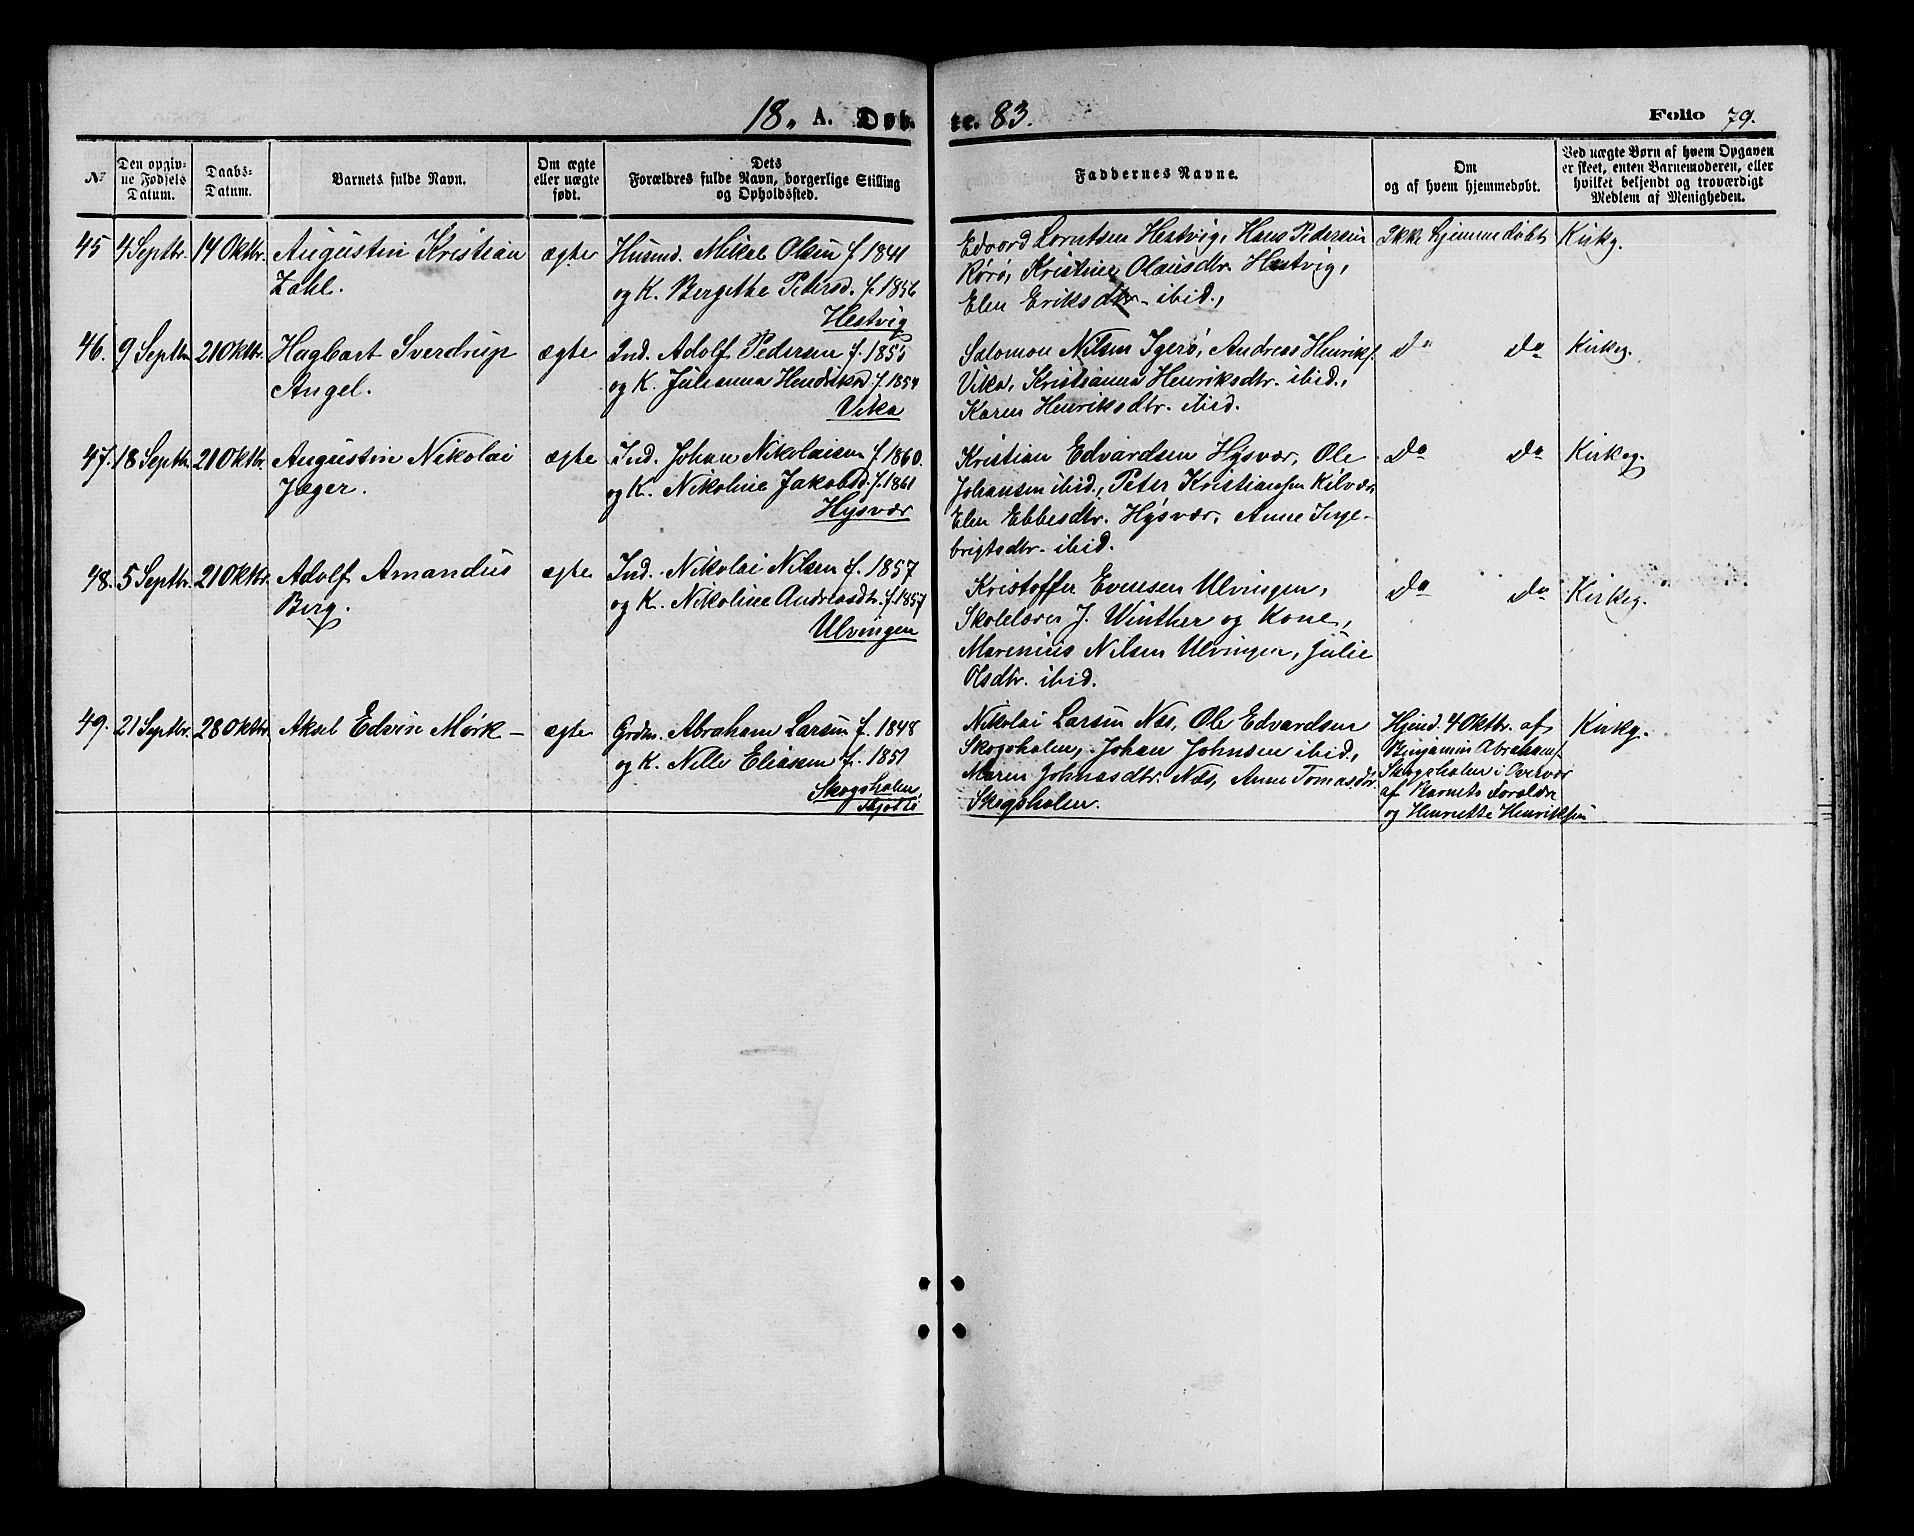 18. A. Døb- te. 83. Folio 79.
No Den opgivne Fødsels Datum. Daabs-Datum. Barnets fulde Navn. Om ægte eller uægte født. Dets Forældres fulde Navn, borgerlige Stilling og Opholdssted. Faddernes Navne. Om og af hvem hjemmedøbt. Ved uægte Børn af hvem Opgaven er skeet, enten Barnemoderen, eller hvilket beljendt og troværdigt Medlem af Menigheden.
45 4 Septbr. 14 Oktbr. Augustin Kristian ægte Husmd. Mikal Olsen f. 1841
Zahl. og K. Bergithe Pedersd. f. 1856
Hestvig
Edvard Lorntsen Hestvig, Hans Pedersen Ikke hjemmedøbt Kirkg.
Rørø, Kristine Olausdtr. Hestvig,
Elen Eriksdtr. ibid.,
46. 9 Septbr. 21 Oktbr. Hagbart Sverdrup ægte Ind. Adolf Pedersen f. 1855
Angel. og K. Julianna Hendriksd. f. 1854
Vika
Salomon Nilsen Igerø, Andreas Henriks. do do Kirkeg.
Vika, Kristianna Henriksdtr. ibid.,
Karen Henriksdtr. ibid.
47. 18 Septbr. 21 Oktbr. Augustin Nikolai ægte Ind. Johan Nikolaisen f. 1860.
Jæger. og K. Nikoline Jakobsd. f. 1861
Hysvær
Kristian Edvardsen Hysvær, Ole do do Kirkeg.
Johansen ibid., Peter Kristiansen Kilvær,
Elen Ebbesdtr. Hysvær, Anne Inge-
brigtsdtr. ibid.
48. 5 Septbr. 21 Oktbr. Adolf Amandus ægte Ind. Nikolai Nilsen f. 1857
Berg. og K. Nikoline Andreasdtr. f. 1857
Ulvingen
Kristoffer Evensen Ulvingen, do do Kirkeg.
Skolelærer J. Winther og Kone,
Marenius Nilsen Ulvingen, Julie
Olsdtr. ibid.
49. 21 Septbr. 28 Oktbr. Aksel Edvin Mørk - ægte Grdm. Abraham Larsen f. 1848
og K. Nille Eliasen f. 1851
Skogsholen,
Nikolai Larsen Næs, Ole Edvardsen Hjmd. 4 Oktbr. af Kirkg.
Skogsholen, Johan Johnsen ibid., Benjamin Abraham.
Maren Johnasdtr. Næs, Anne Tomasdtr. Skogsholen i Overvær
Skogsholen. af Barnets Forældre
og Henriette Henriksen